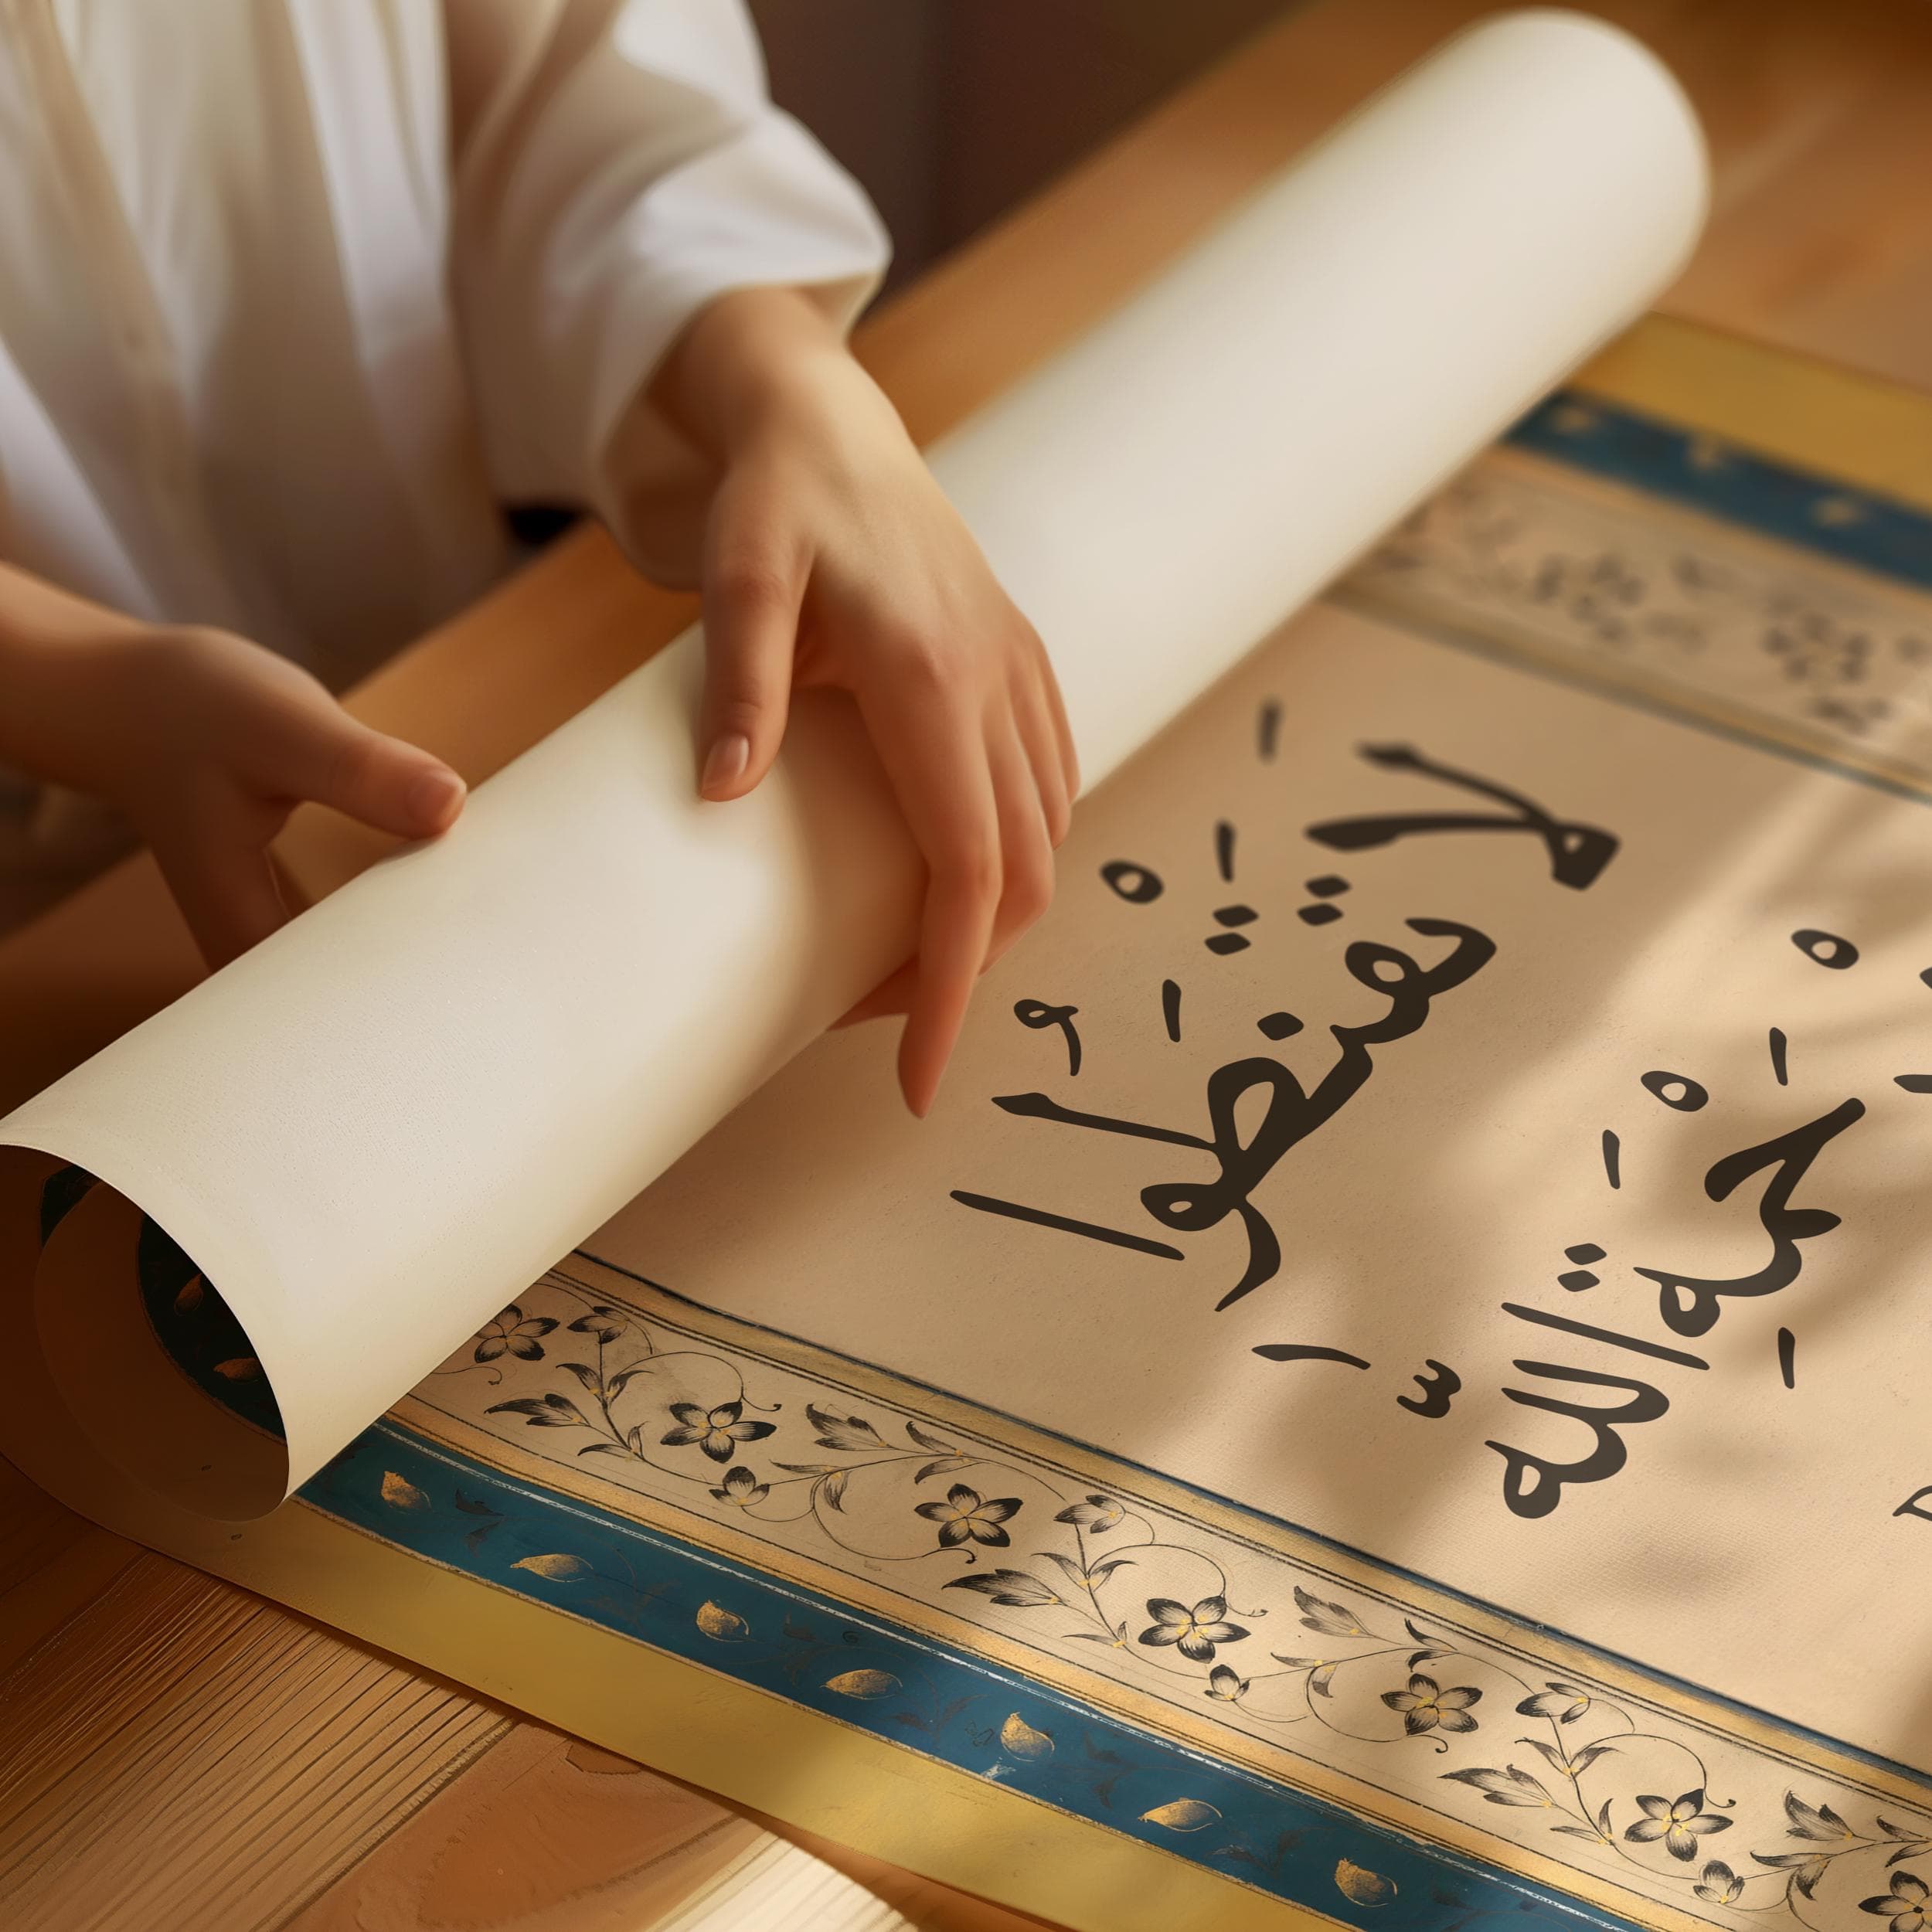 لَا تَقْنَطُوا
رَحْمَةِ اللَّه